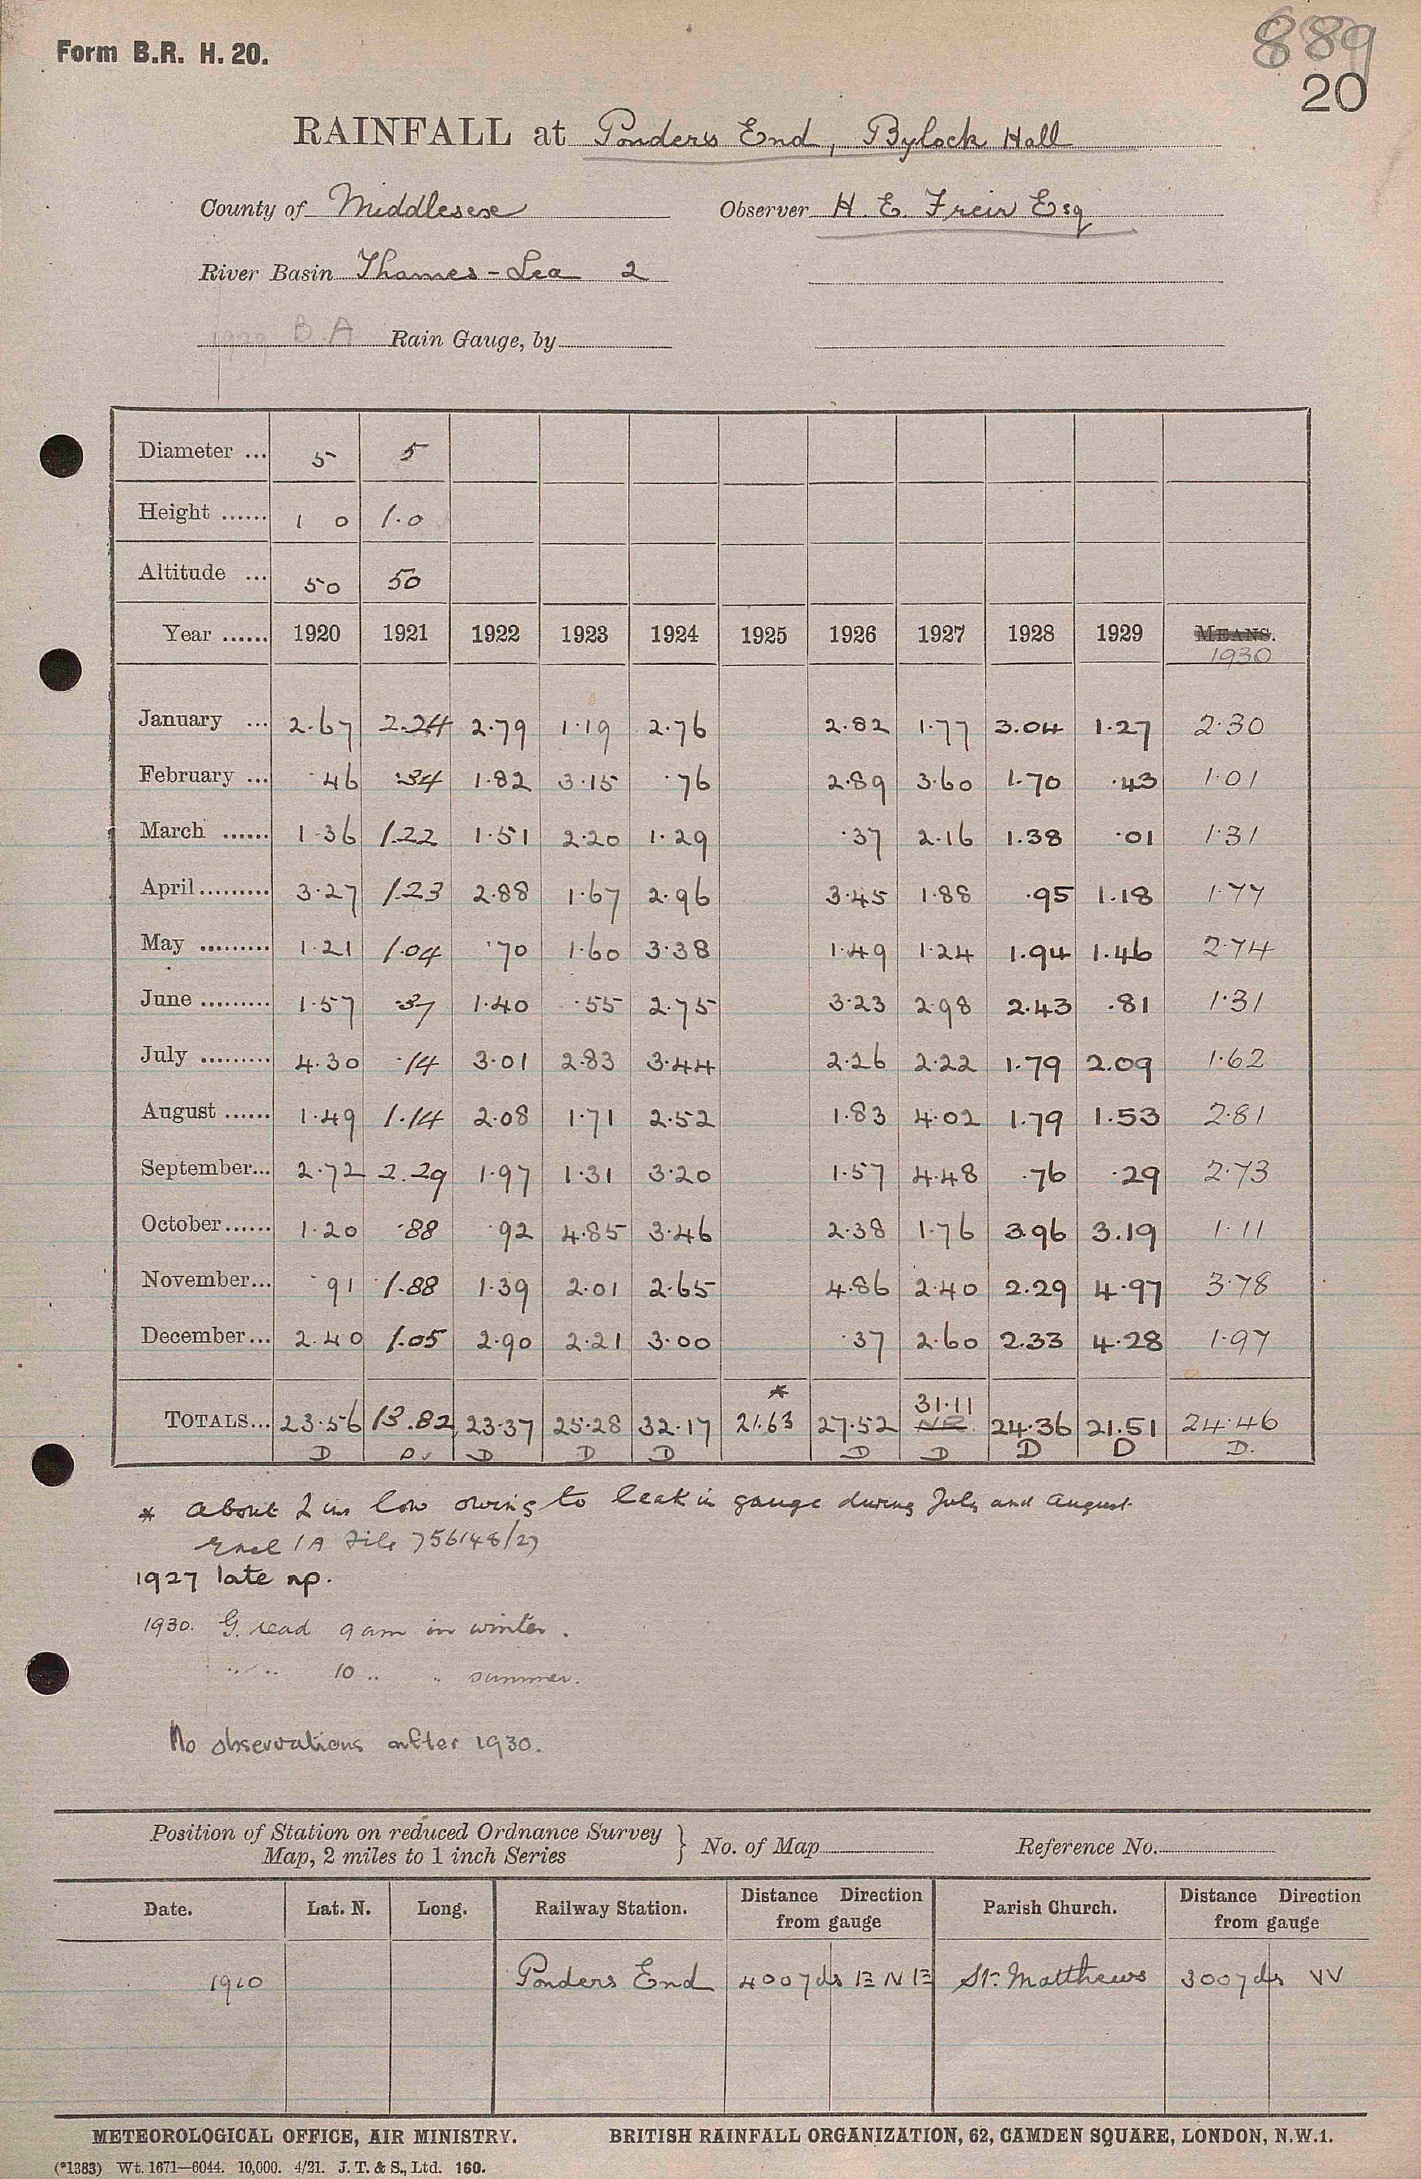 Form B.R. H. 20.
889
20
RAINFALL at Ponders End, Bylock Hall
County of Middlesex Observer H. E. Freir Esq
River Basin Thames - Lea 2
1929 B A Rain Gauge, by
Diameter ... 5 5
Height ...... 1 0 1.0
Altitude ... 50 50
Year ...... 1920 1921 1922 1923 1924 1925 1926 1927 1928 1929 MEANS.
1930
January ... 2.67 2.24 2.79 1.19 2.76 2.82 1.77 3.04 1.27 2.30
February ... .46 .34 1.82 3.15 .76 2.89 3.60 1.70 .43 1.01
March ...... 1.36 1.22 1.51 2.20 1.29 .37 2.16 1.38 .01 1.31
April ......... 3.27 1.23 2.88 1.67 2.96 3.45 1.88 .95 1.18 1.77
May ......... 1.21 1.04 .70 1.60 3.38 1.49 1.24 1.94 1.46 2.74
June ......... 1.57 .37 1.40 .55 2.75 3.23 2.98 2.43 .81 1.31
July ......... 4.30 .14 3.01 2.83 3.44 2.26 2.22 1.79 2.09 1.62
August ...... 1.49 1.14 2.08 1.71 2.52 1.83 4.02 1.79 1.53 2.81
September... 2.72 2.29 1.97 1.31 3.20 1.57 4.48 .76 .29 2.73
October...... 1.20 .88 .92 4.85 3.46 2.38 1.76 3.96 3.19 1.11
November... .91 1.88 1.39 2.01 2.65 4.86 2.40 2.29 4.97 3.78
December... 2.40 1.05 2.90 2.21 3.00 .37 2.60 2.33 4.28 1.97
* 31.11
TOTALS... 23.56 13.82 23.37 25.28 32.17 21.63 27.52 NR 24.36 21.51 24.46
D D. D D D D D D D D.
* About 2 ins low owing to leak in gauge during July and August
Encl 1A File 756148/27
1927 late np.
1930. G. read 9 am in winter.
" " 10 " " summer.
No observations after 1930.
Position of Station on reduced Ordnance Survey
Map, 2 miles to 1 inch Series } No. of Map Reference No.
Date. Lat. N. Long. Railway Station. Distance Direction from gauge Parish Church. Distance Direction from gauge
1910 Ponders End 400 yds ENE St. Matthews 300 yds W
METEOROLOGICAL OFFICE, AIR MINISTRY. BRITISH RAINFALL ORGANIZATION, 62, CAMDEN SQUARE, LONDON, N.W.1.
(*1383) Wt. 1671—6044. 10,000. 4/21. J. T. & S., Ltd. 160.